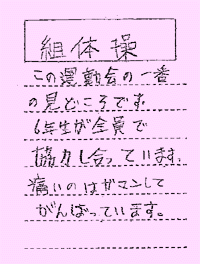 組体操
この運動会の一番
の見どころです。
6年生が全員で
協力し合っています。
痛いのはガマンして
がんばっています。